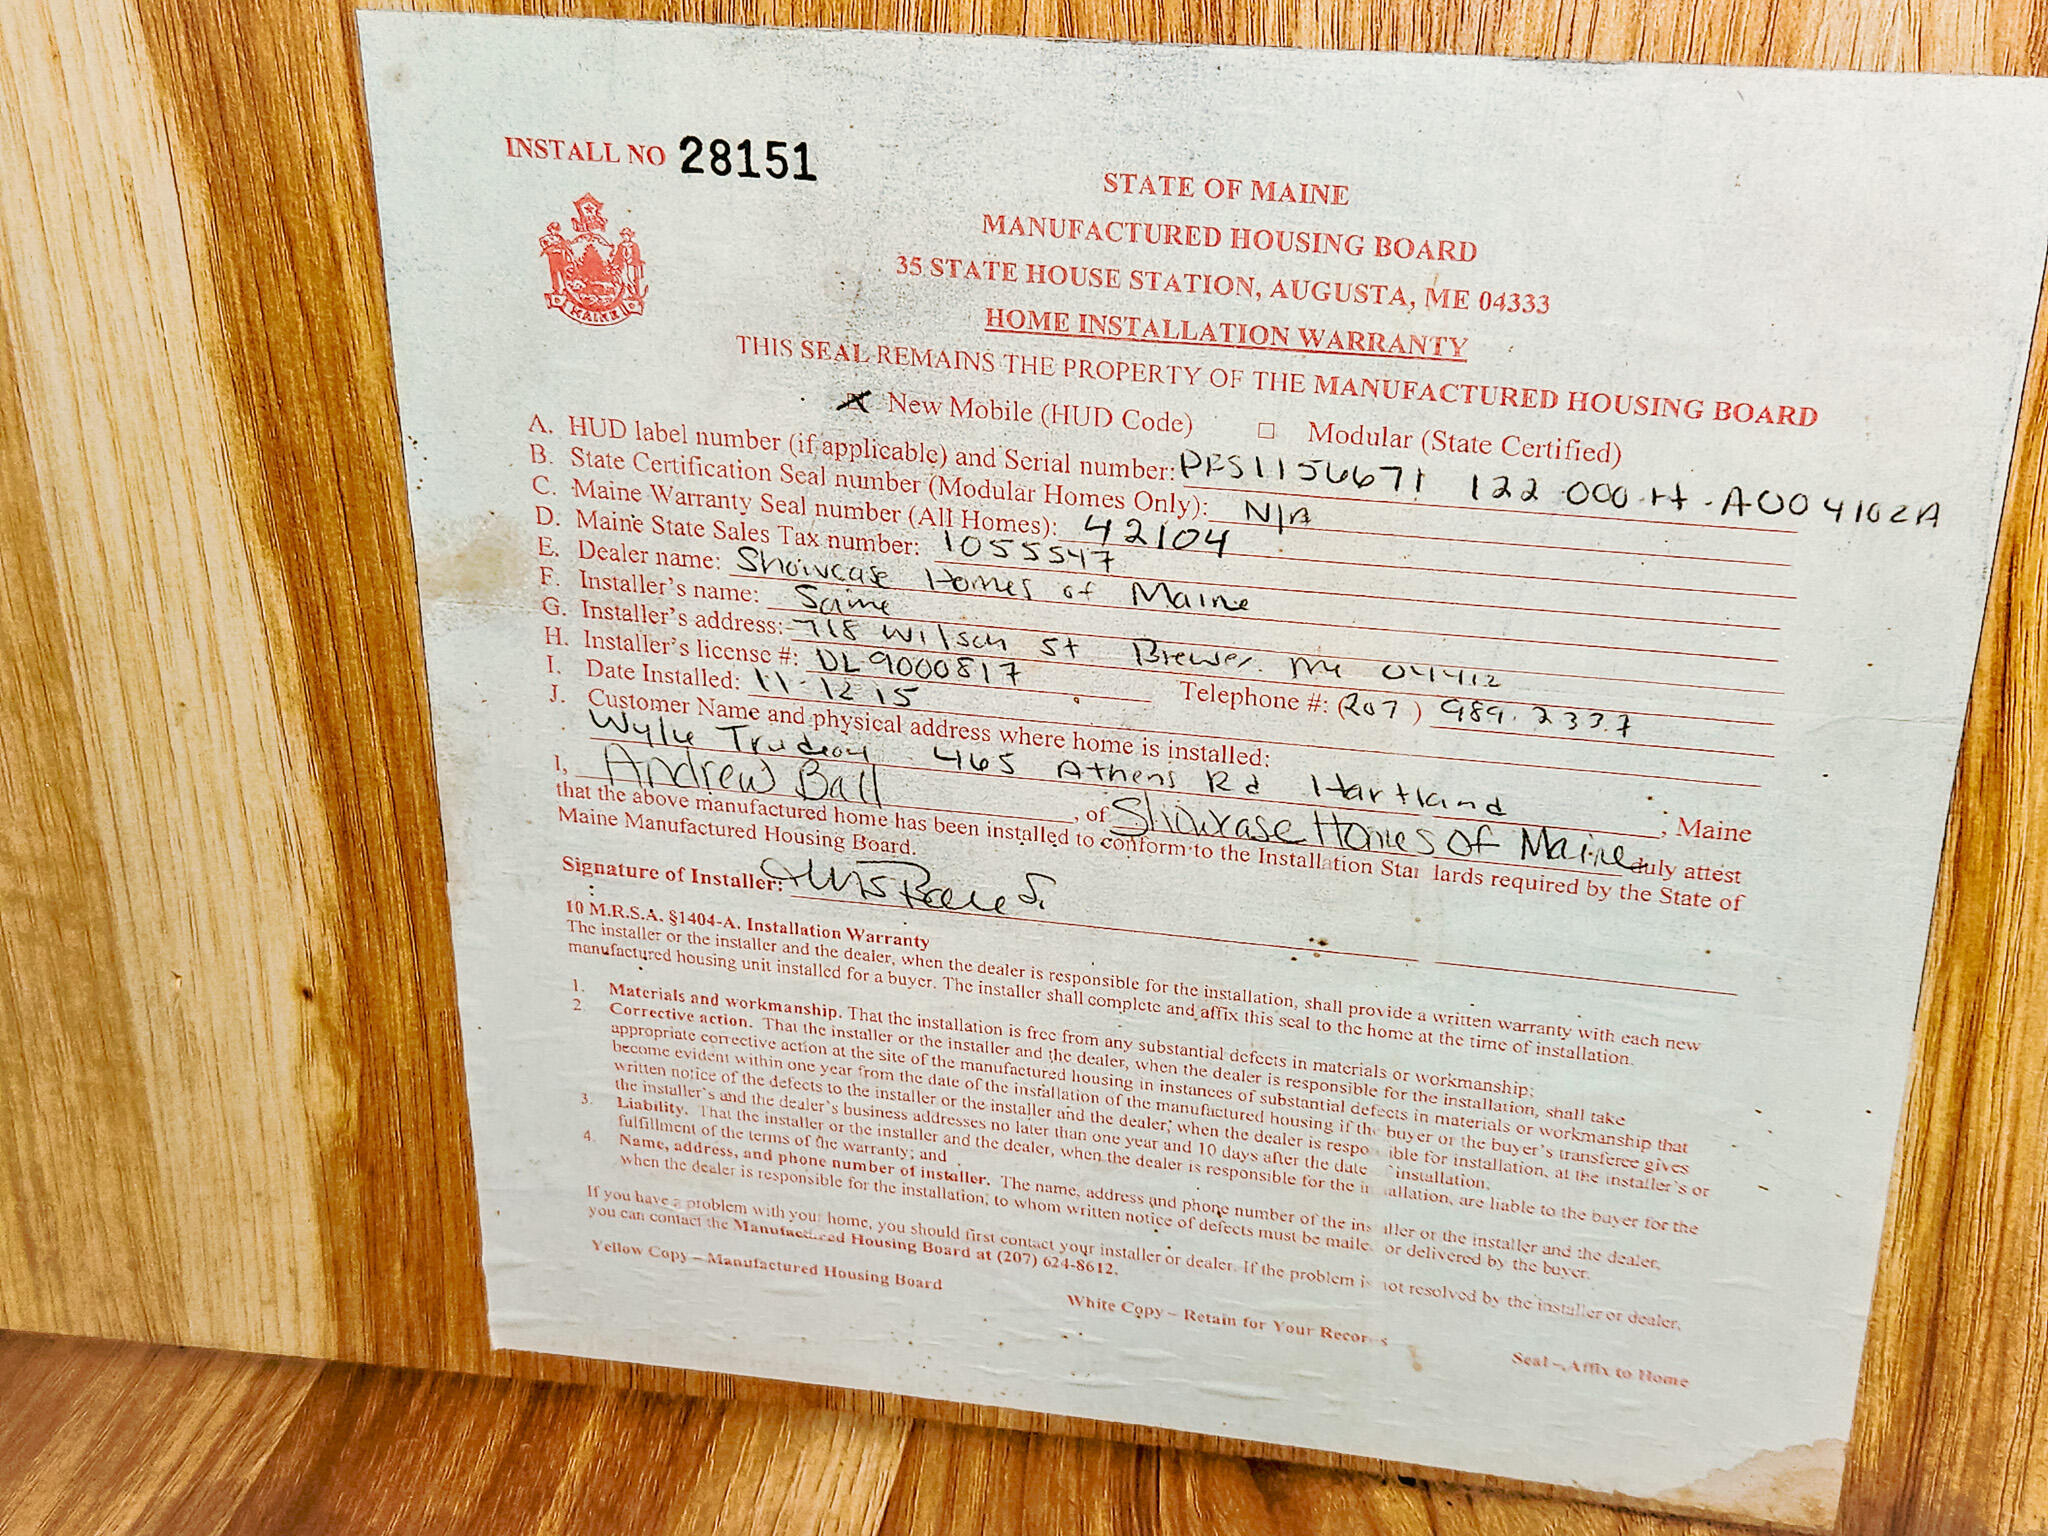 INSTALL NO 28151
STATE OF MAINE
MANUFACTURED HOUSING BOARD
35 STATE HOUSE STATION, AUGUSTA, ME 04333
MAINE
HOME INSTALLATION WARRANTY
THIS SEAL REMAINS THE PROPERTY OF THE MANUFACTURED HOUSING BOARD
X New Mobile (HUD Code) □ Modular (State Certified)
A. HUD label number (if applicable) and Serial number: PFS1156671 122 000-H-A004102A
B. State Certification Seal number (Modular Homes Only): N/A
C. Maine Warranty Seal number (All Homes): 42104
D. Maine State Sales Tax number: 1055547
E. Dealer name: Showcase Homes of Maine
F. Installer's name: Same
G. Installer's address: 718 Wilson St Brewer Me 04412
H. Installer's license #: DL9000817 Telephone #: (207) 989.2337
I. Date Installed: 11-12 15
J. Customer Name and physical address where home is installed:
Wylie 465 Athens Rd Hartland, Maine
I, Andrew Ball, of Showcase Homes Of Maine duly attest
that the above manufactured home has been installed to conform to the Installation Standards required by the State of
Maine Manufactured Housing Board.
Signature of Installer:
10 M.R.S.A. §1404-A. Installation Warranty
The installer or the installer and the dealer, when the dealer is responsible for the installation, shall provide a written warranty with each new
manufactured housing unit installed for a buyer. The installer shall complete and affix this seal to the home at the time of installation.
1. Materials and workmanship. That the installation is free from any substantial defects in materials or workmanship;
2. Corrective action. That the installer or the installer and the dealer, when the dealer is responsible for the installation, shall take
appropriate corrective action at the site of the manufactured housing in instances of substantial defects in materials or workmanship that
become evident within one year from the date of the installation of the manufactured housing if the buyer or the buyer's transferee gives
written notice of the defects to the installer or the installer and the dealer, when the dealer is responsible for installation, at the installer's or
the installer's and the dealer's business addresses no later than one year and 10 days after the date installation;
3. Liability. That the installer or the installer and the dealer, when the dealer is responsible for the installation, are liable to the buyer for the
fulfillment of the terms of the warranty; and
4. Name, address, and phone number of installer. The name, address and phone number of the installer or the installer and the dealer,
when the dealer is responsible for the installation, to whom written notice of defects must be mailed or delivered by the buyer.
If you have a problem with your home, you should first contact your installer or dealer. If the problem is not resolved by the installer or dealer,
you can contact the Manufactured Housing Board at (207) 624-8612.
Yellow Copy – Manufactured Housing Board White Copy – Retain for Your Records Seal – Affix to Home